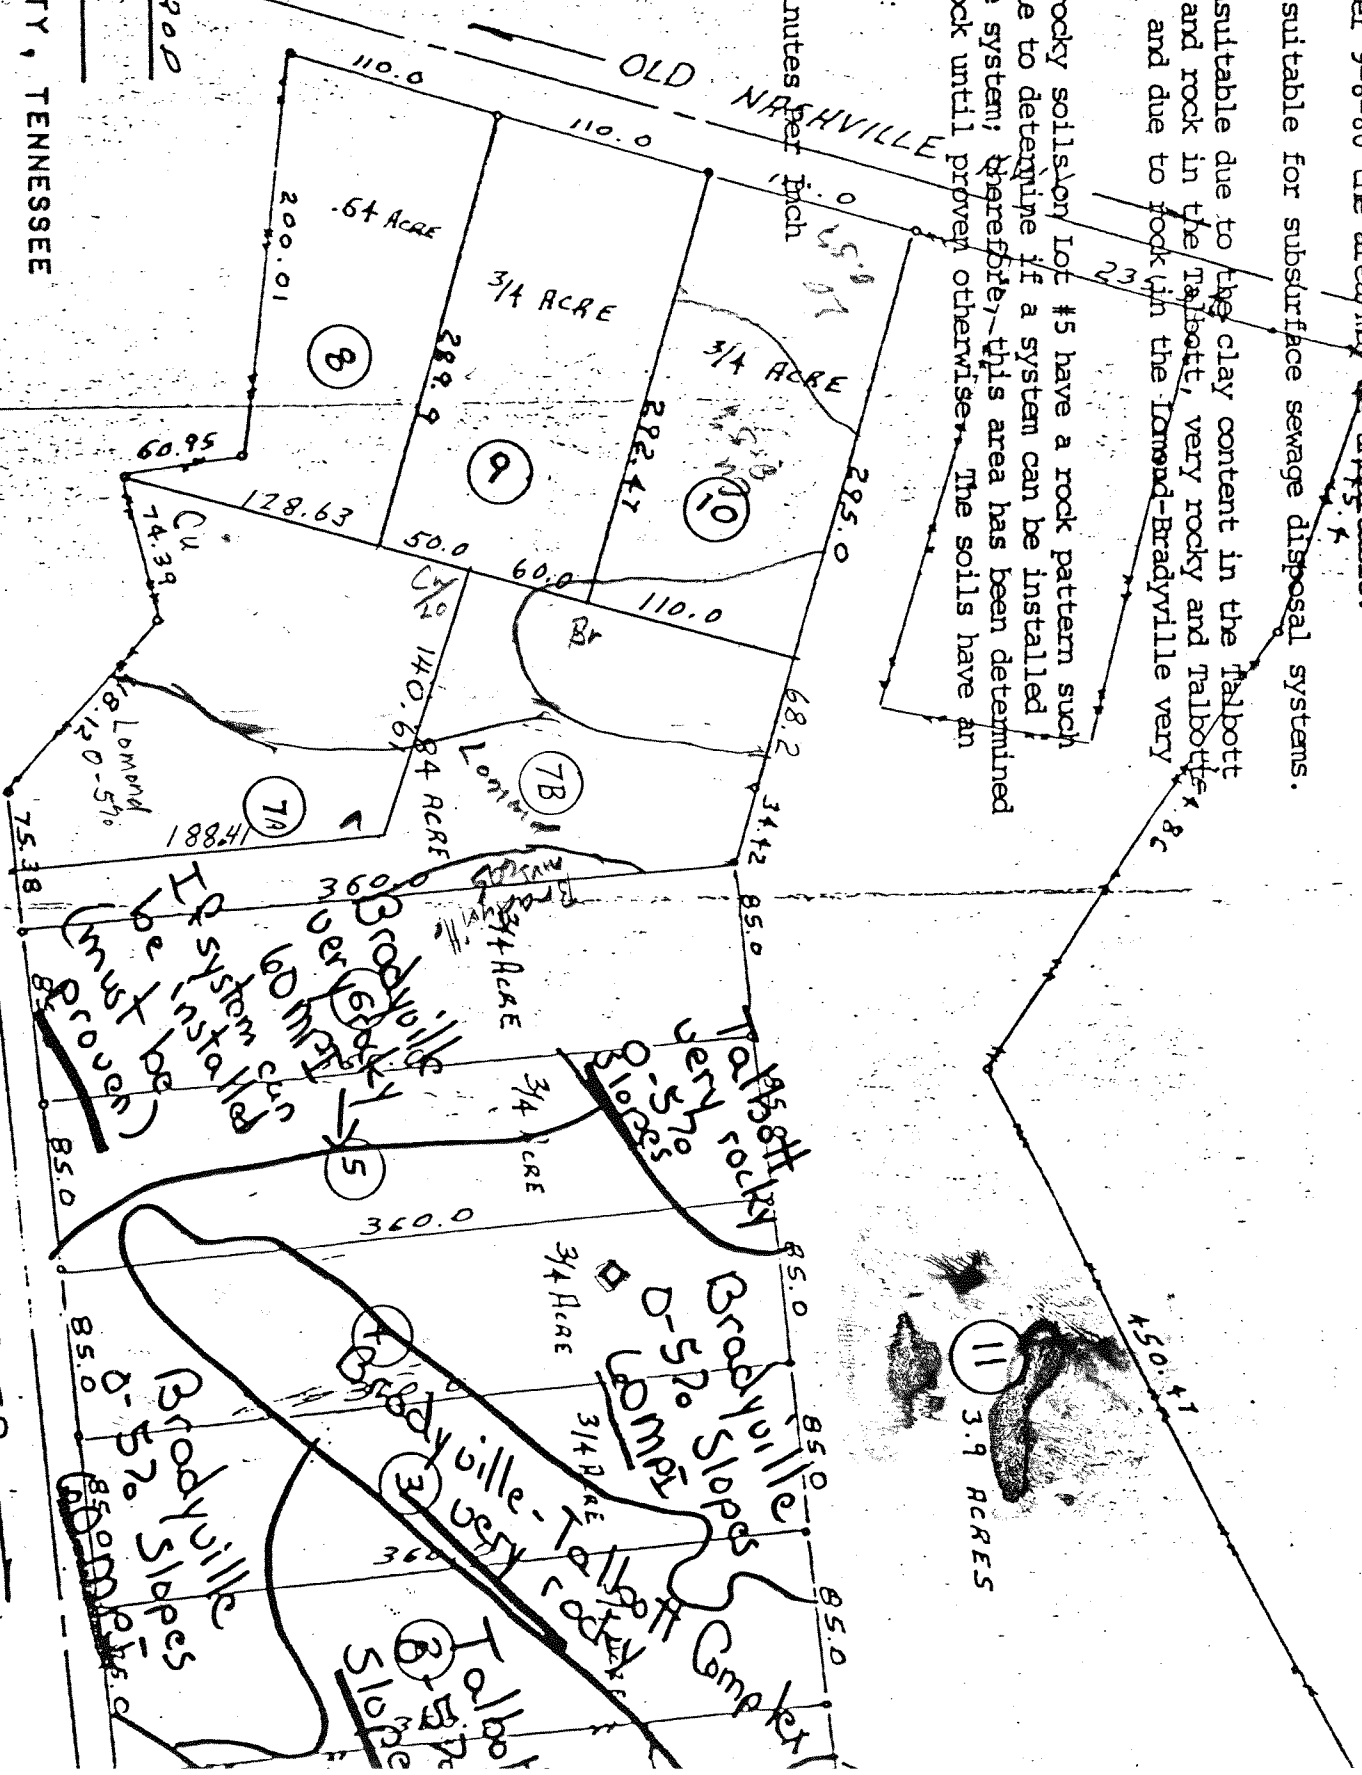 suitable for subsurface sewage disposal systems.
suitable due to the clay content in the Talbott
and rock in the Talbott, very rocky and Talbott
and due to rock in the Lomond-Bradyville very
rocky soils on Lot #5 have a rock pattern such
e to determine if a system can be installed
e system; therefore, this area has been determined
ock until proven otherwise. The soils have an
nutes per inch
TY, TENNESSEE
OLD NASHVILLE
110.0
110.0
200.01
.64 ACRE
8
289.9
3/4 ACRE
9
292.47
3/4 ACRE
10
295.0
60.95
128.63
50.0
60.0
110.0
74.39
Cu
Br
68.2
34.42
140.61
84 ACRE
7B
Lomond
7A
188.41
Lomond
0-5%
75.38
360.0
85.0
3/4 ACRE
Bradyville
very rocky
6
60 MPI
If system can
be installed
(must be
proven)
Talbott
very rocky
0-5%
Slopes
3/4 ACRE
5
85.0
360.0
85.0
3/4 ACRE
Bradyville
0-5% Slopes
60 MPI
4
85.0
85.0
3/4 ACRE
Bradyville-Talbott Complex
very rocky
3
360
85.0
Bradyville
0-5% Slopes
60 MPI
85.0
Talbot
5%
Slope
11
3.9 ACRES
450.47